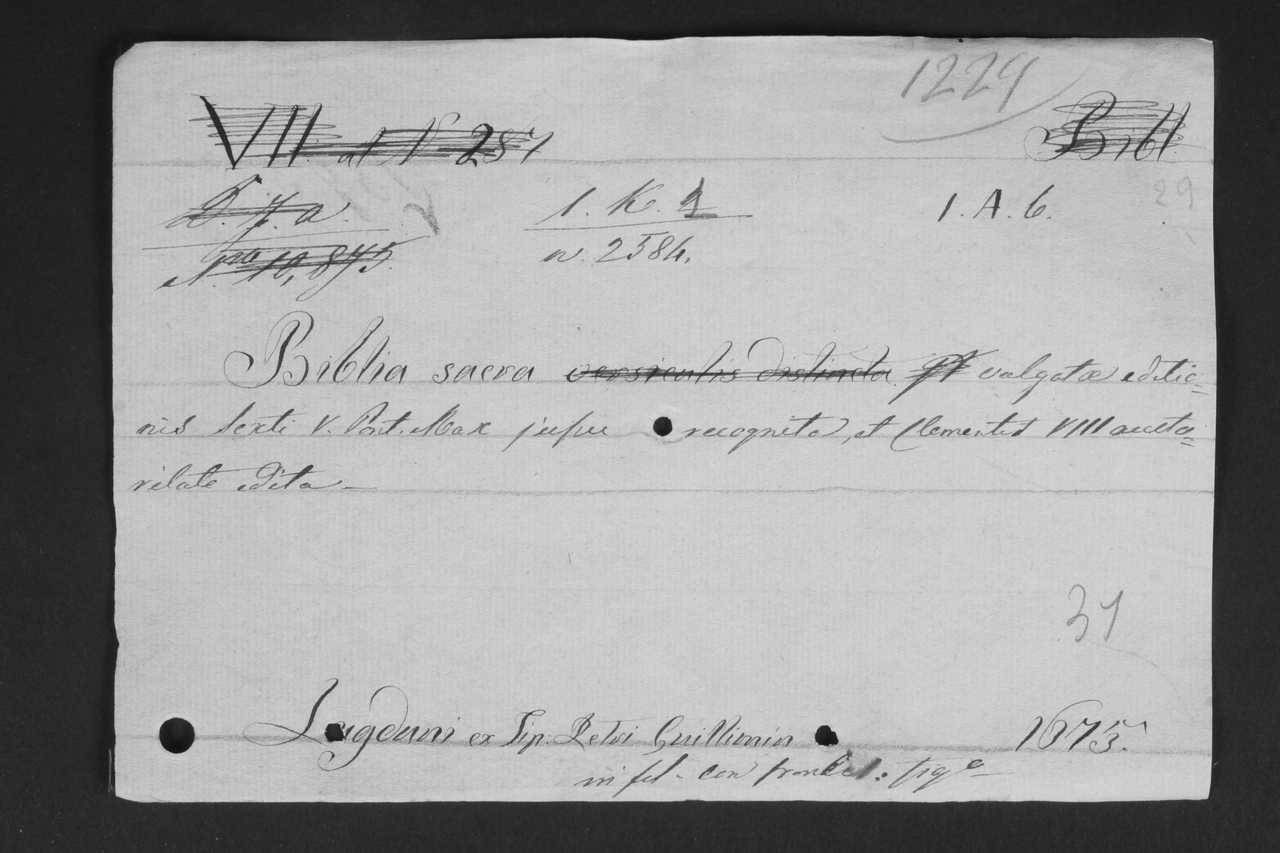 1224
VII at N 287 Bibl
29
D. 7. a. 1. K. 1 1. A. 6.
N.ro 10,875. n. 2584.
Biblia sacra versiculis distincta vulgatæ editio=
nis Sexti V. Pont. Max jussu recognita, et Clementis VIII aucto=
ritate edita —
31
Lugduni ex Tip: Petri Guillimin 1675.
in fol - con frontes: fig.e